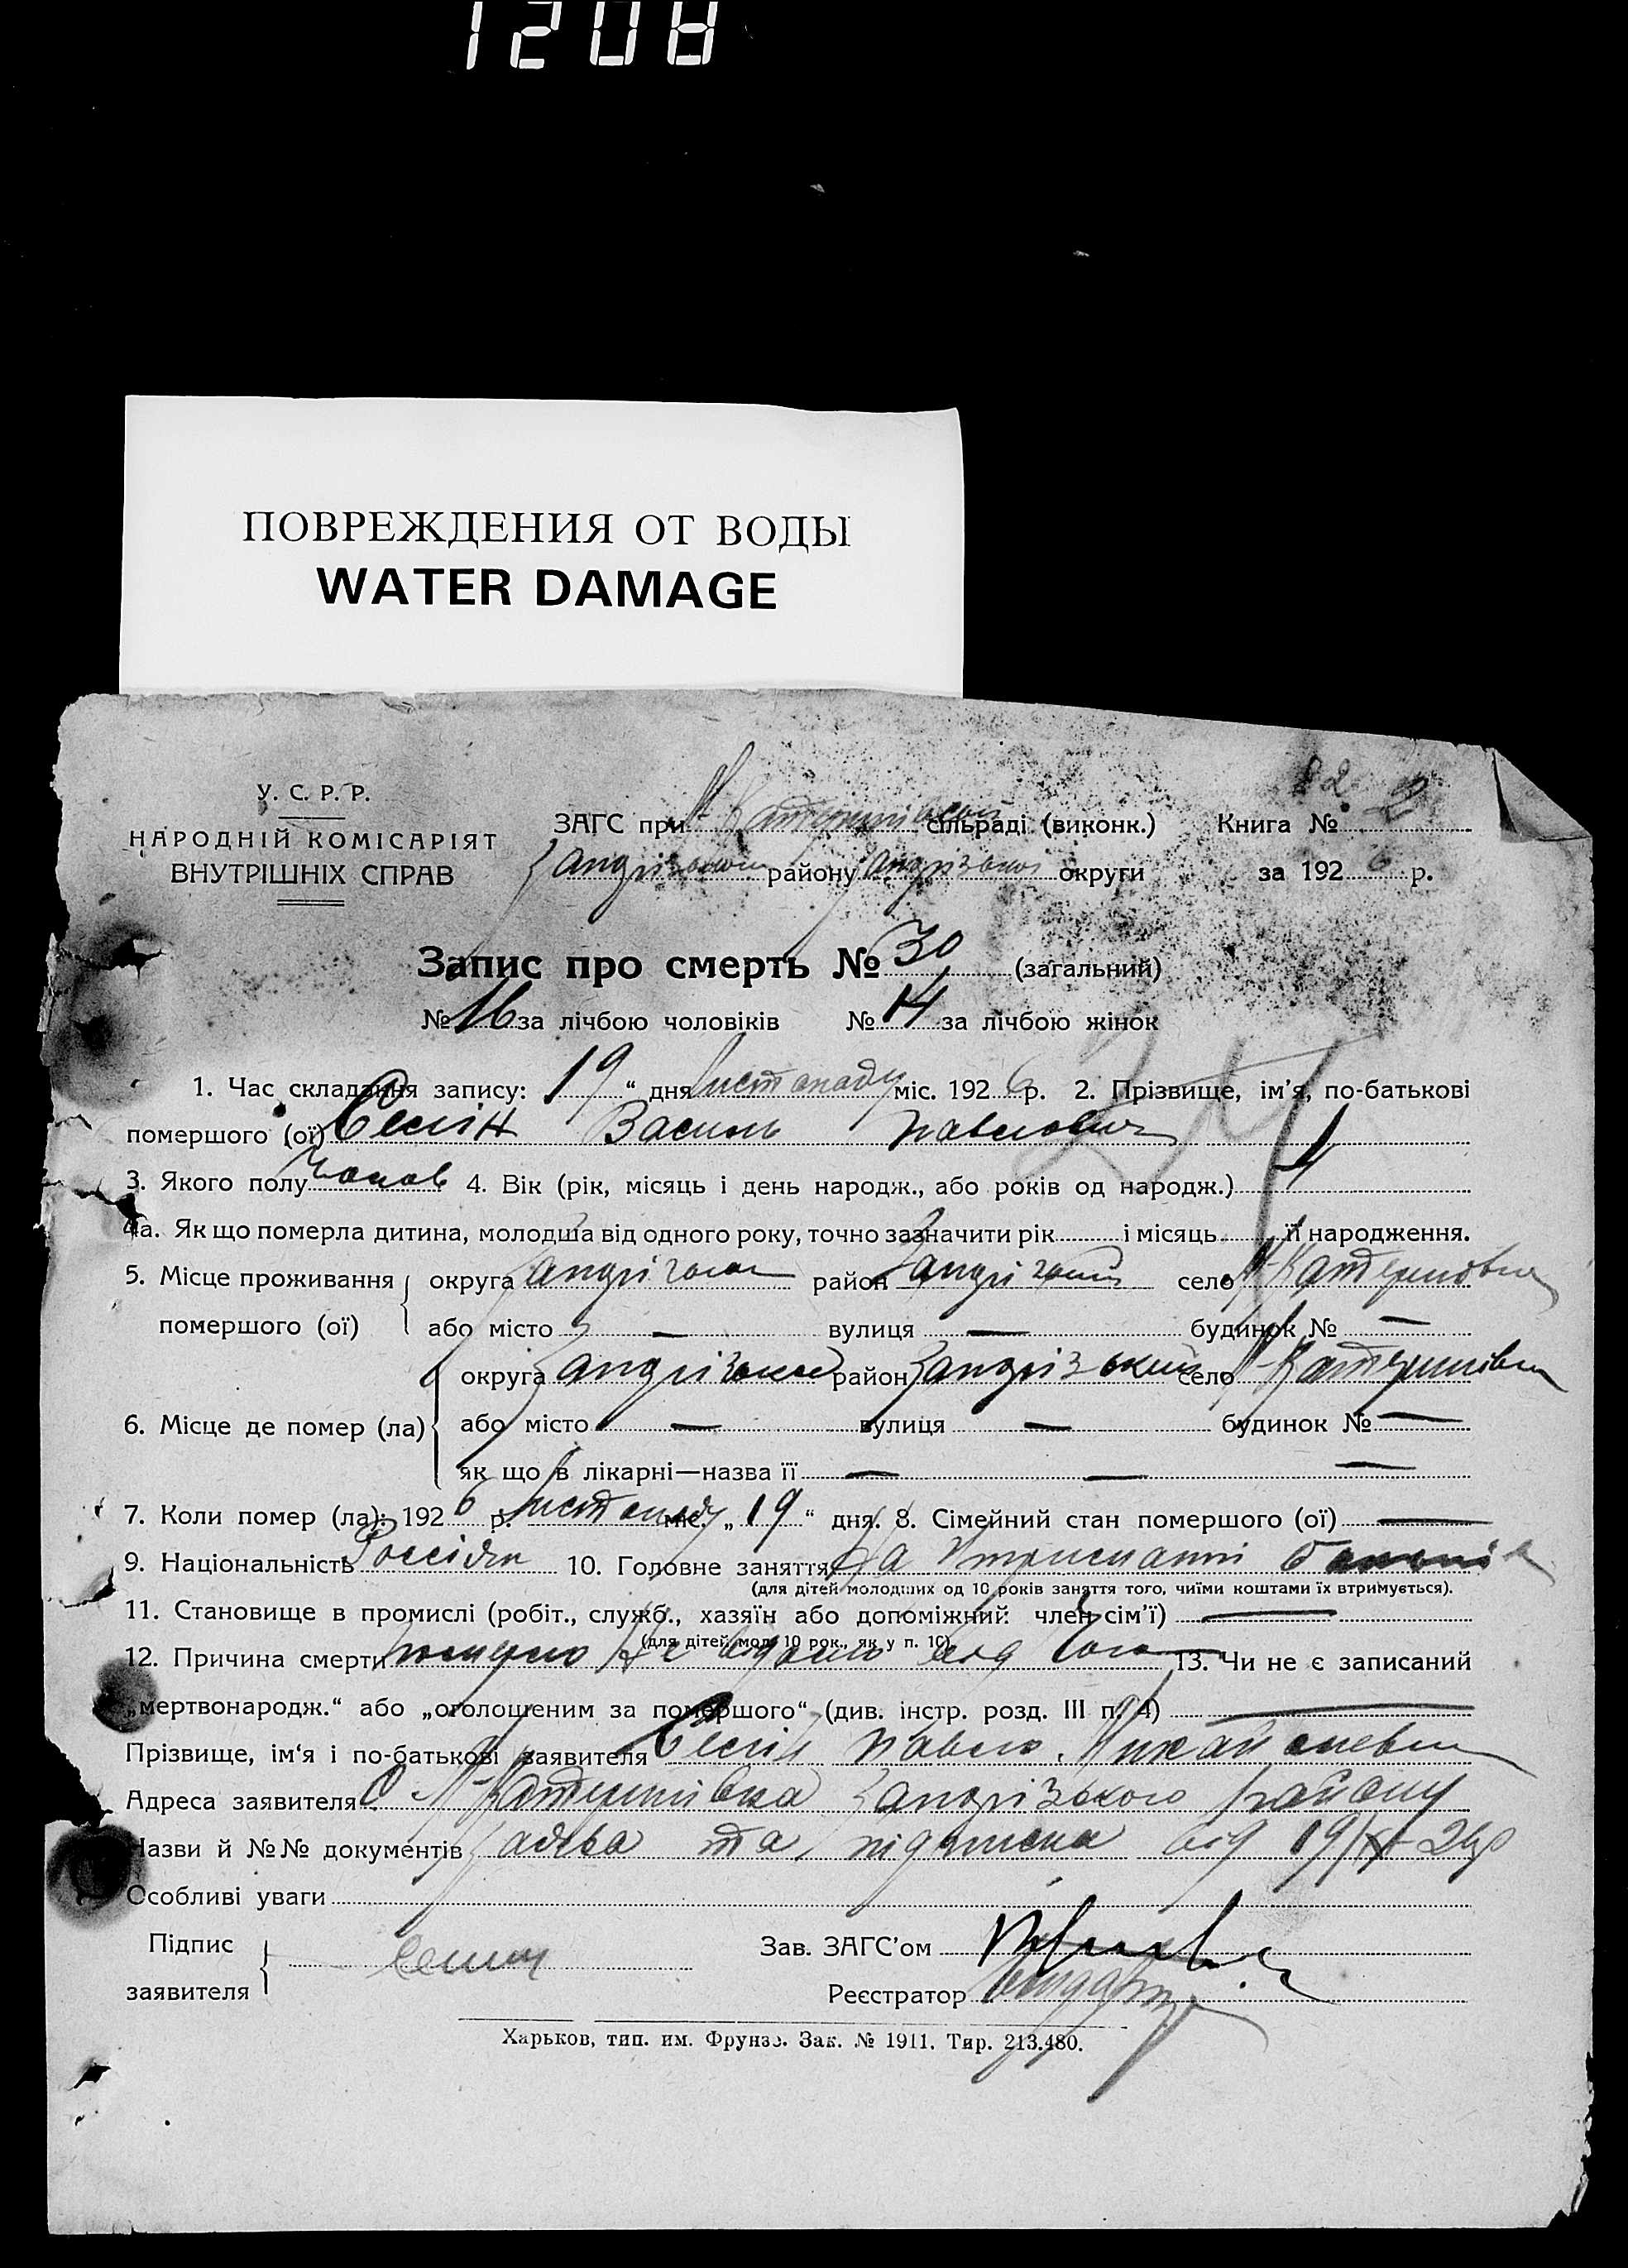 1208
ПОВРЕЖДЕНИЯ ОТ ВОДЫ
WATER DAMAGE
82 2
У. С. Р. Р.
НАРОДНІЙ КОМІСАРІЯТ
ВНУТРІШНІХ СПРАВ
ЗАГС при М-Катеринівскій сільраді (виконк.) Книга № 2
Запорізького району Запорізької округи за 1926 р.
Запис про смерть № 30 (загальний)
№ 16 за лічбою чоловіків № 14 за лічбою жінок
1. Час складання запису: 19 " дня листопаду міс. 1926 р. 2. Прізвище, ім'я, по-батькові
помершого (ої) Сесін Василь Павлович
3. Якого полу чолов 4. Вік (рік, місяць і день народж., або років од народж.) 4
4а. Як що померла дитина, молодша від одного року, точно зазначити рік і місяць її народження.
5. Місце проживання округа район село
помершого (ої) або місто — вулиця — будинок № —
округа Запорізька район Запорізький село М-Катеринівка
6. Місце де помер (ла) або місто — вулиця — будинок № —
як що в лікарні—назва її — — —
7. Коли помер (ла): 1926 р. листопаду міс. „ 19 “ дня. 8. Сімейний стан помершого (ої) —
9. Національність Россіян 10. Головне заняття На утриманні
(для дітей молодших од 10 років заняття того, чиїми коштами їх втримується).
11. Становище в промислі (робіт., служб., хазяїн або допоміжний член сім'ї) —
(для дітей мол. 10 рок., як у п. 10)
12. Причина смерті Не відомо від чого 13. Чи не є записаний
„мертвонародж.“ або „оголошеним за помершого“ (див. інстр. розд. III п. 4) —
Прізвище, ім‘я і по-батькові заявителя Сесін Павло Михайлович
Адреса заявителя С М-Катеринівка Запорізького району
Назви й №№ документів Заява та підписка від 19/XI-26р
Особливі уваги
Підпис Зав. ЗАГС'ом
заявителя
Реєстратор
Харьков, тип. им. Фрунзе. Зак. № 1911. Тир. 213.480.